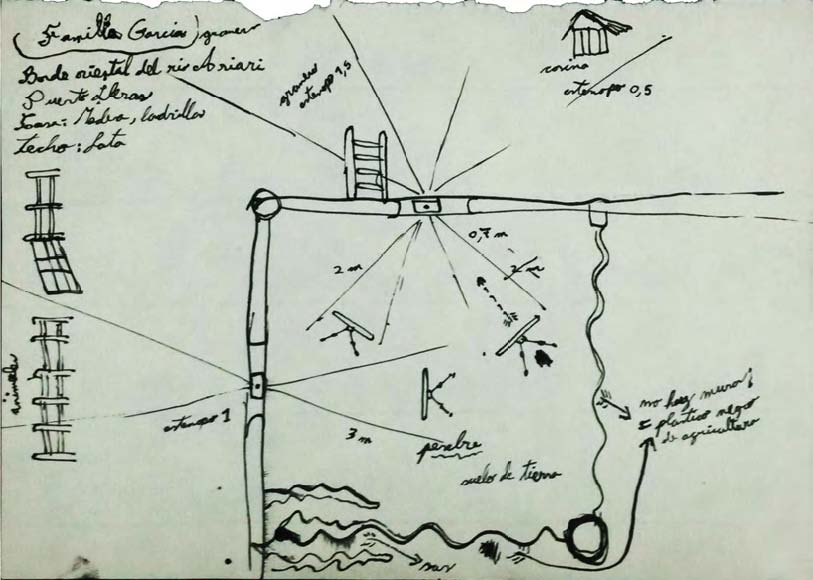 Familia (Garcia) granero
Borde oriental del rio Ariari
Puerto Lleras
Casa: Madera, ladrillo
techo: Lata
granero
estenopo 1,5
cosina
estenopo 0,5
0,7 m
2 m
2 m
animales
estenopo 1
3 m
pesebre
suelo de tierra
no hay muro!
= plastico negro
de agricultura